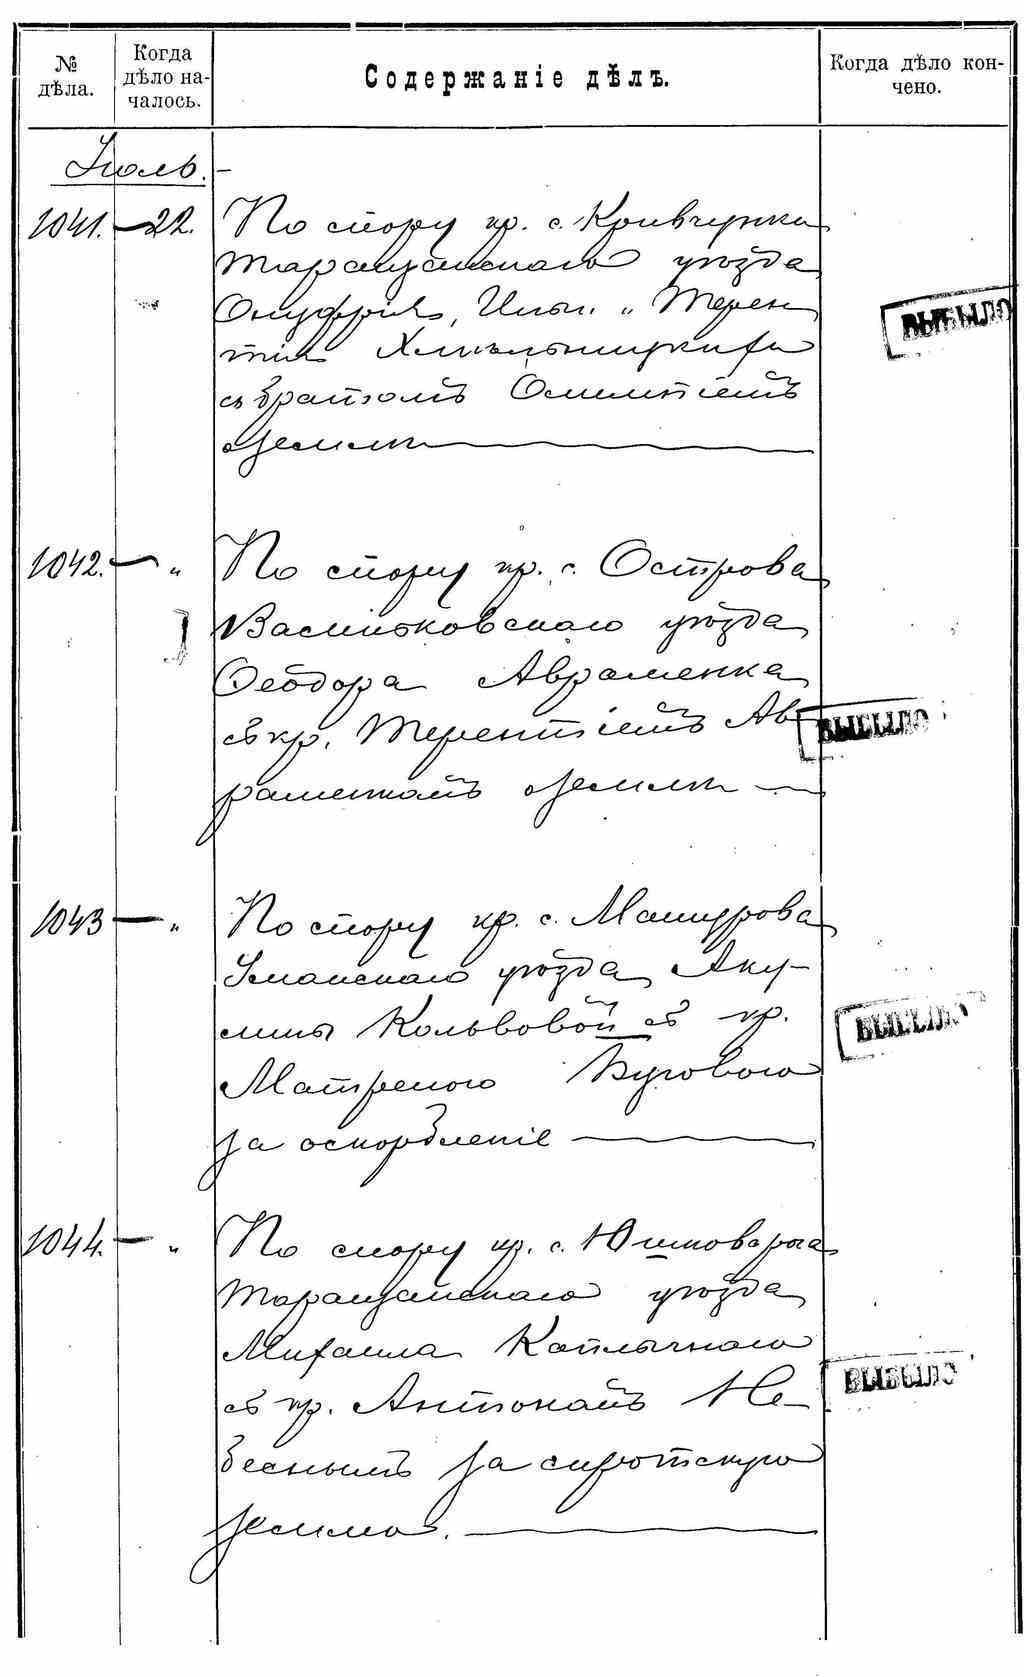 № дѣла.
Когда дѣло на-
чалось.
Содержаніе дѣлъ.
Когда дѣло кон-
чено.
Іюль.
1041. 22. По спору кр. с. Кривчунки
Таращанскаго уѣзда
Онуфрія, Ильи и Терен
тія Хмѣльницкихъ
съ братомъ
о землѣ
ВЫБЫЛО
1042. „ По спору кр. с. Острова
Васильковскаго уѣзда
Ѳеодора Авраменка
съ кр. Терентіемъ Ав-
раменкомъ о землѣ
ВЫБЫЛО
1043 „ По спору кр. с. Машурова
Уманскаго уѣзда Аку-
лины съ кр.
Матреною
за оскорбленіе
ВЫБЫЛО
1044. „ По спору кр. с.
Таращанскаго уѣзда
Михаила
съ кр. Антономъ Не-
беснымъ за сиротскую
землю.
ВЫБЫЛО